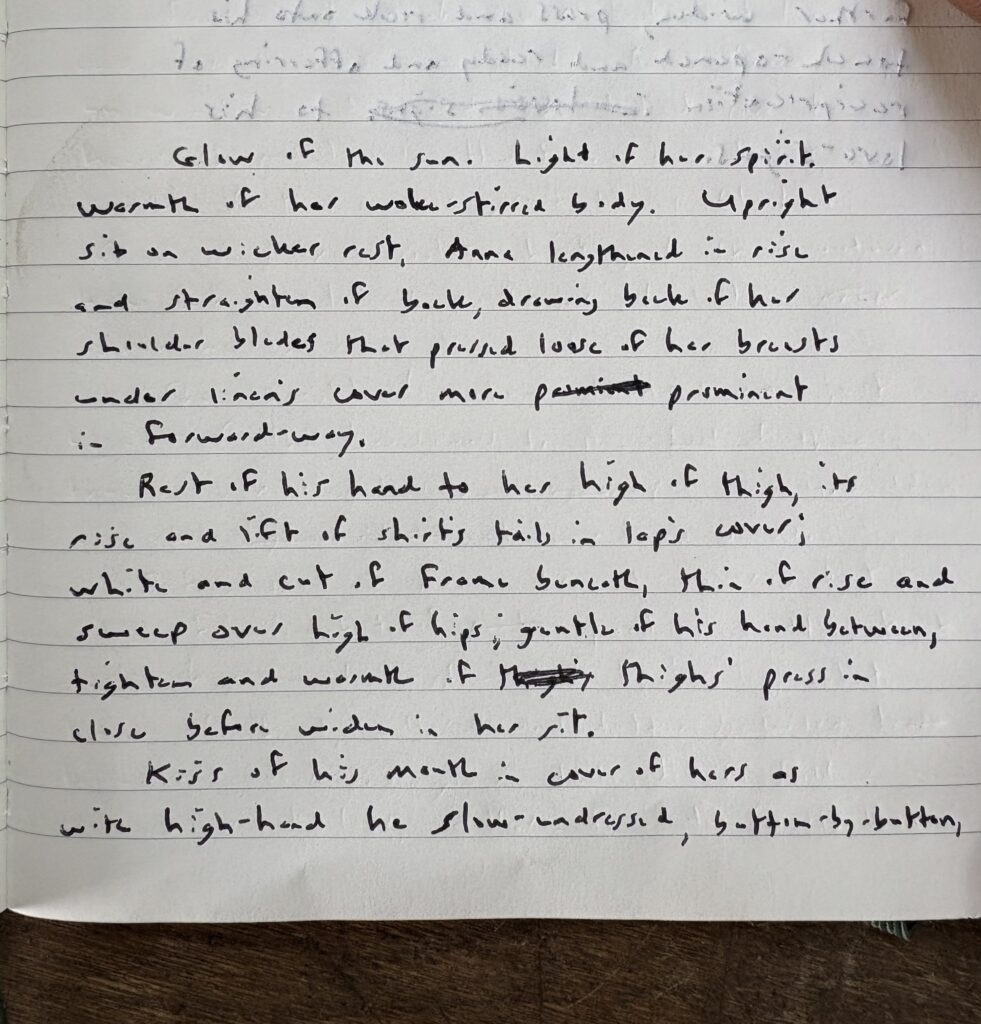 Glow of the sun. Light of her spirit.
Warmth of her woke-stirred body. Upright
sit on wicker rest, Anna lengthened in rise
and straighten of back, drawing back of her
shoulder blades that pressed loose of her breasts
under linen's cover more prominent
in forward-way.
Rest of his hand to her high of thigh, its
rise and lift of shirt's tails in lap's cover;
white and cut of frame beneath, thin of rise and
sweep over high of hips; gentle of his hand between,
tighten and warmth of thighs' press in
close before widen in her sit.
Kiss of his mouth in cover of hers as
with high-hand he slow-undressed, button-by-button,